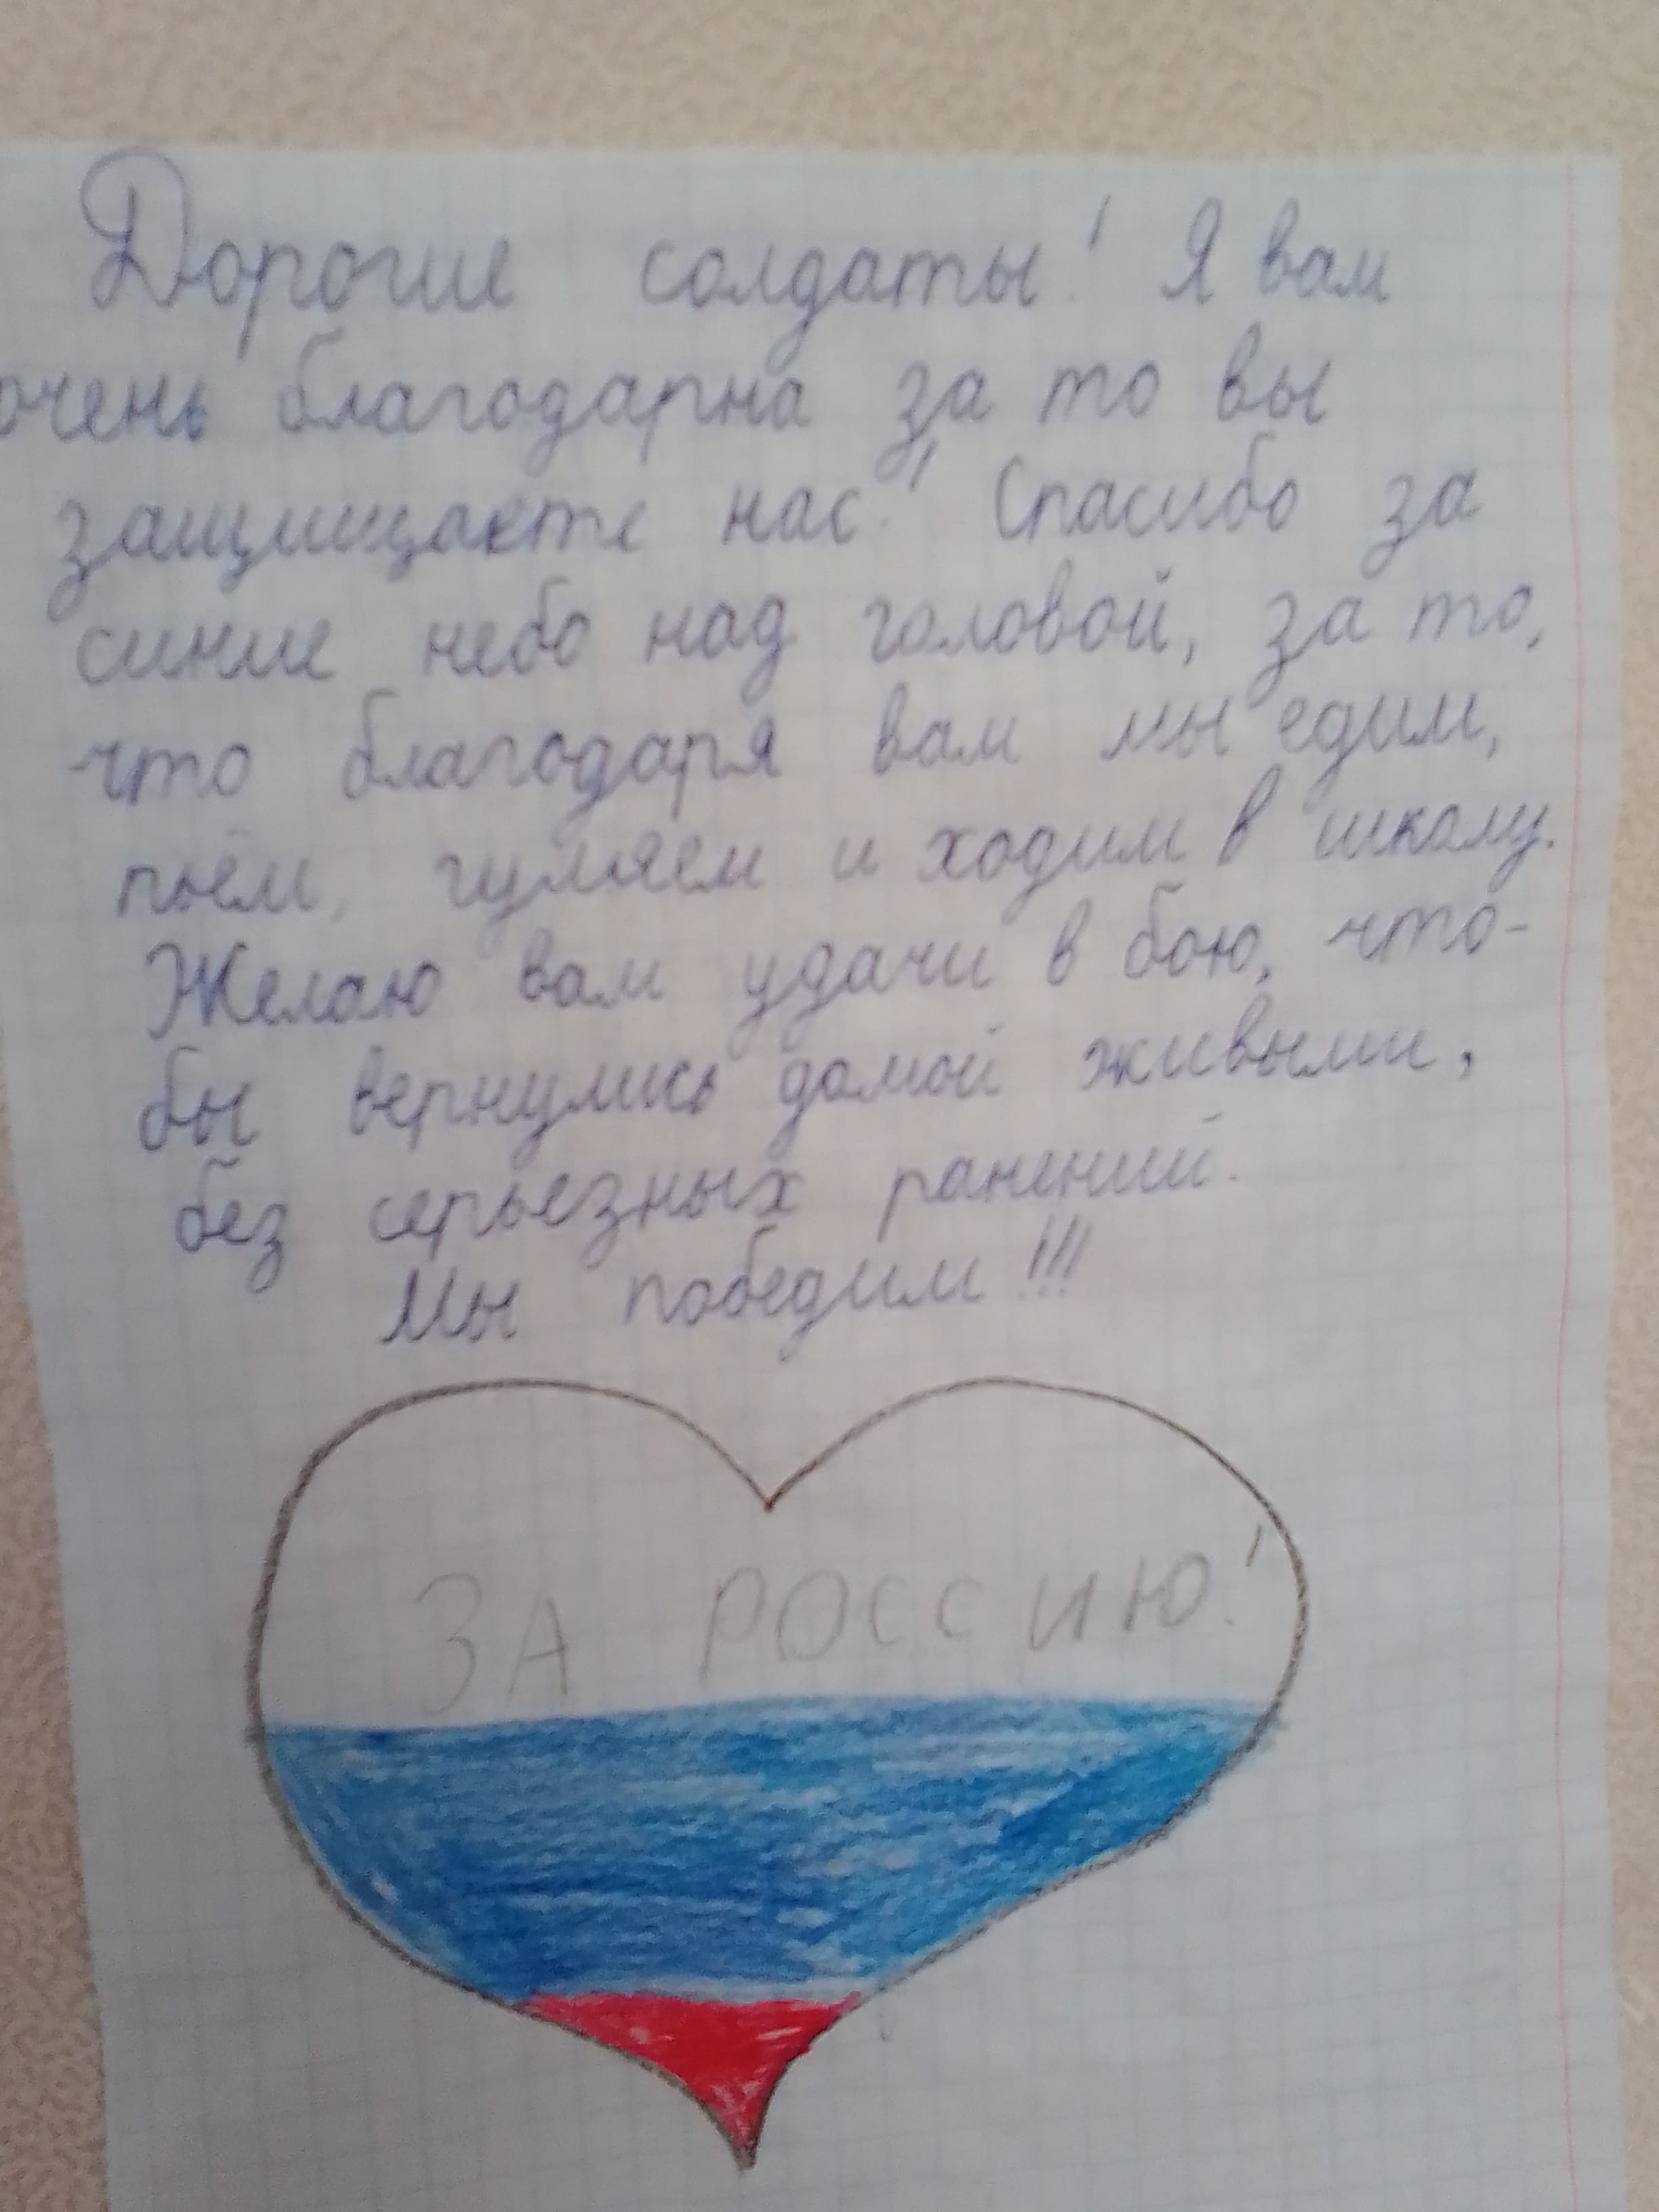 Дорогие солдаты! Я вам
очень благодарна за то вы
защищаете нас! Спасибо за
синие небо над головой, за то,
что благодаря вам мы едим,
пьём, гуляем и ходим в школу.
Желаю вам удачи в бою, что-
бы вернулись домой живыми,
без серьезных ранений.
Мы победим!!!
ЗА РОССИЮ!